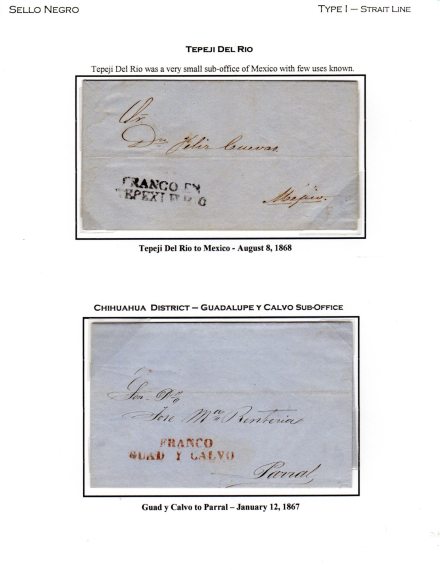 SELLO NEGRO
TYPE I – STRAIT LINE
TEPEJI DEL RIO
Tepeji Del Rio was a very small sub-office of Mexico with few uses known.
Sr
Dn Feliz Cuevas
FRANCO EN
TEPEXI
Mejico.
Tepeji Del Rio to Mexico - August 8, 1868
CHIHUAHUA DISTRICT – GUADALUPE Y CALVO SUB-OFFICE
Jose Ma Renteria
FRANCO
GUAD Y CALVO
Parral
Guad y Calvo to Parral – January 12, 1867